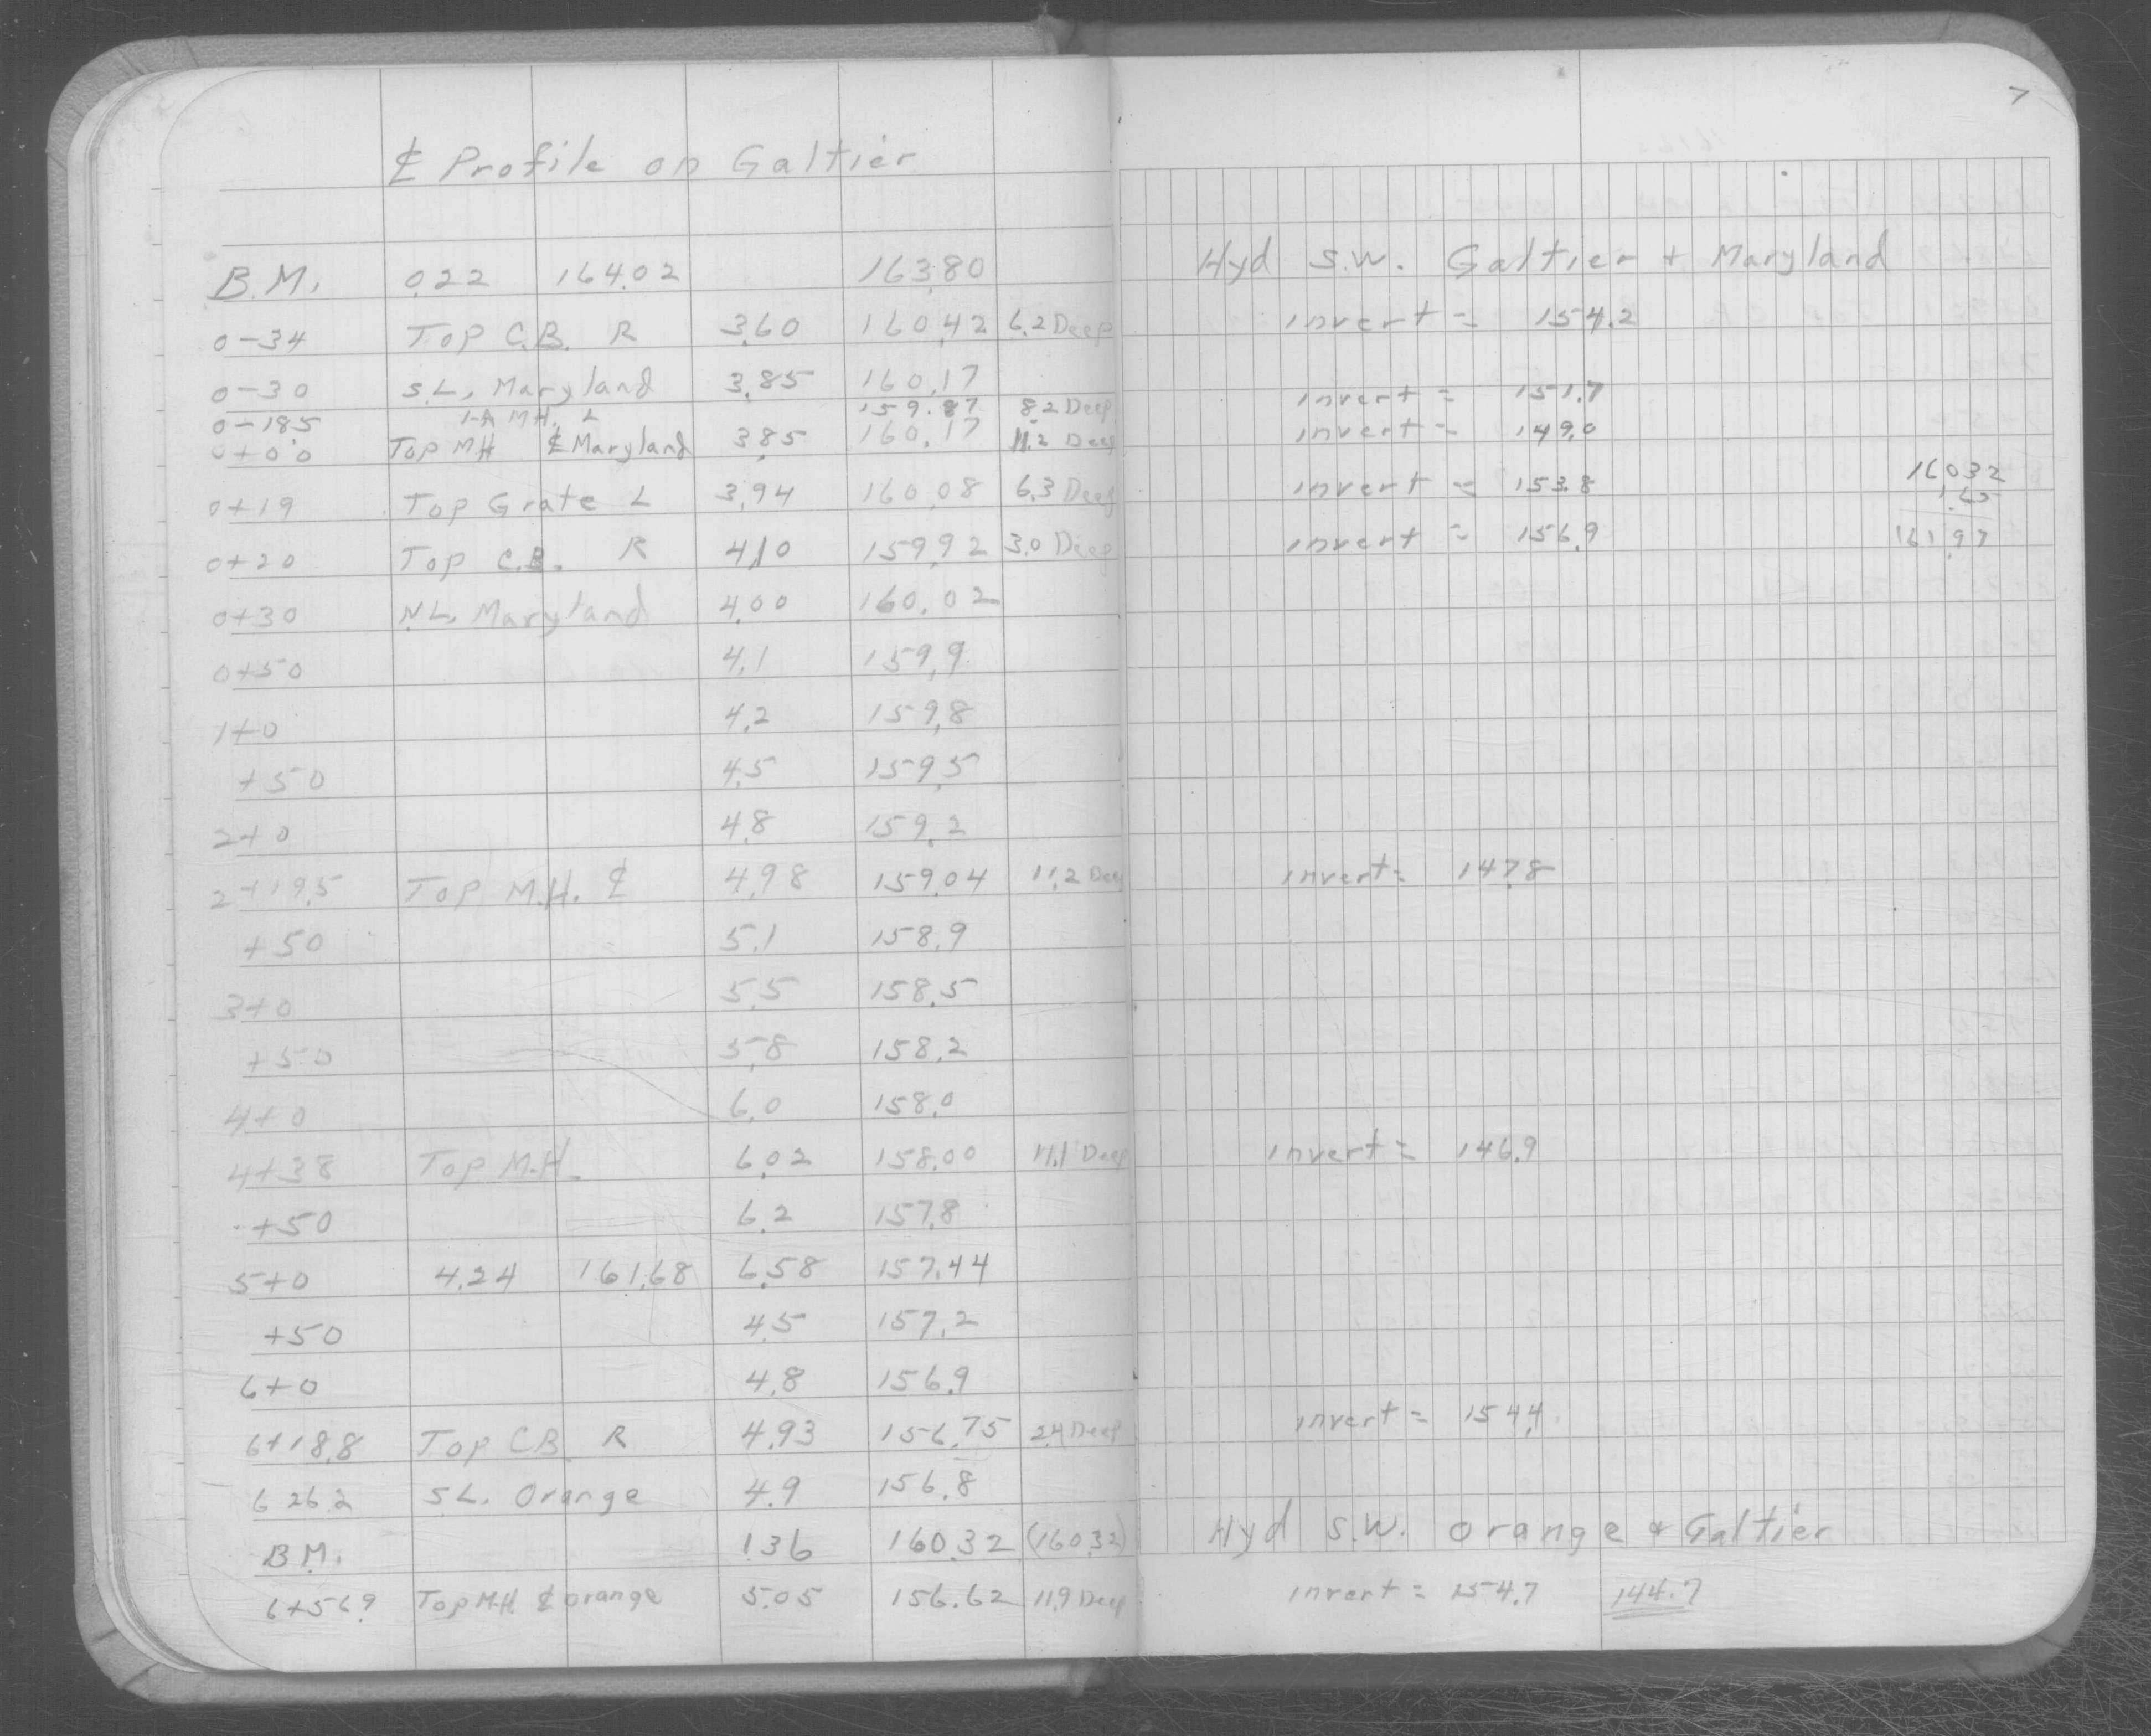 7
℄ Profile on Galtier
B.M. 0.22 164.02 163.80 Hyd S.W. Galtier + Maryland
0-34 Top C.B. R 3.60 160.42 6.2 Deep invert = 154.2
0-30 S.L. Maryland 3.85 160.17
0-18.5 MH. L 159.87 8.2 Deep invert = 151.7
0+0.0 Top MH ℄ Maryland 3.85 160.17 11.2 Deep invert = 149.0
0+19 Top Grate L 3.94 160.08 6.3 Deep invert = 153.8 160.32
1.65
0+20 Top C.B. R 4.10 159.92 3.0 Deep invert = 156.9 161.97
0+30 N.L. Maryland 4.00 160.02
0+50 4.1 159.9
1+0 4.2 159.8
+50 4.5 159.5
2+0 4.8 159.2
2+19.5 Top M.H. ℄ 4.98 159.04 11.2 Deep invert = 147.8
+50 5.1 158.9
3+0 5.5 158.5
+50 5.8 158.2
4+0 6.0 158.0
4+38 Top M.H. 6.02 158.00 11.1 Deep invert = 146.9
+50 6.2 157.8
5+0 4.24 161.68 6.58 157.44
+50 4.5 157.2
6+0 4.8 156.9
6+18.8 Top CB R 4.93 156.75 2.4 Deep invert = 154.4
6 26.2 S.L. Orange 4.9 156.8
B.M. 1.36 160.32 (160.32) Hyd S.W. Orange & Galtier
6+56.9 Top M.H. ℄ Orange 5.05 156.62 11.9 Deep invert = 154.7 144.7